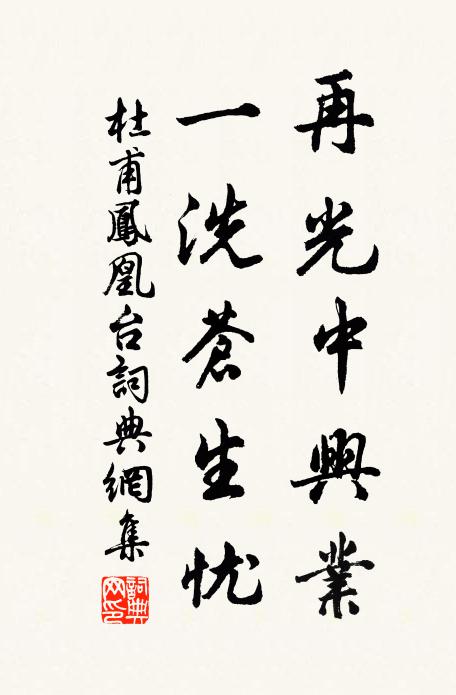 再光中興業
一洗蒼生忧
杜甫鳳凰台詞典網集
詞典網印